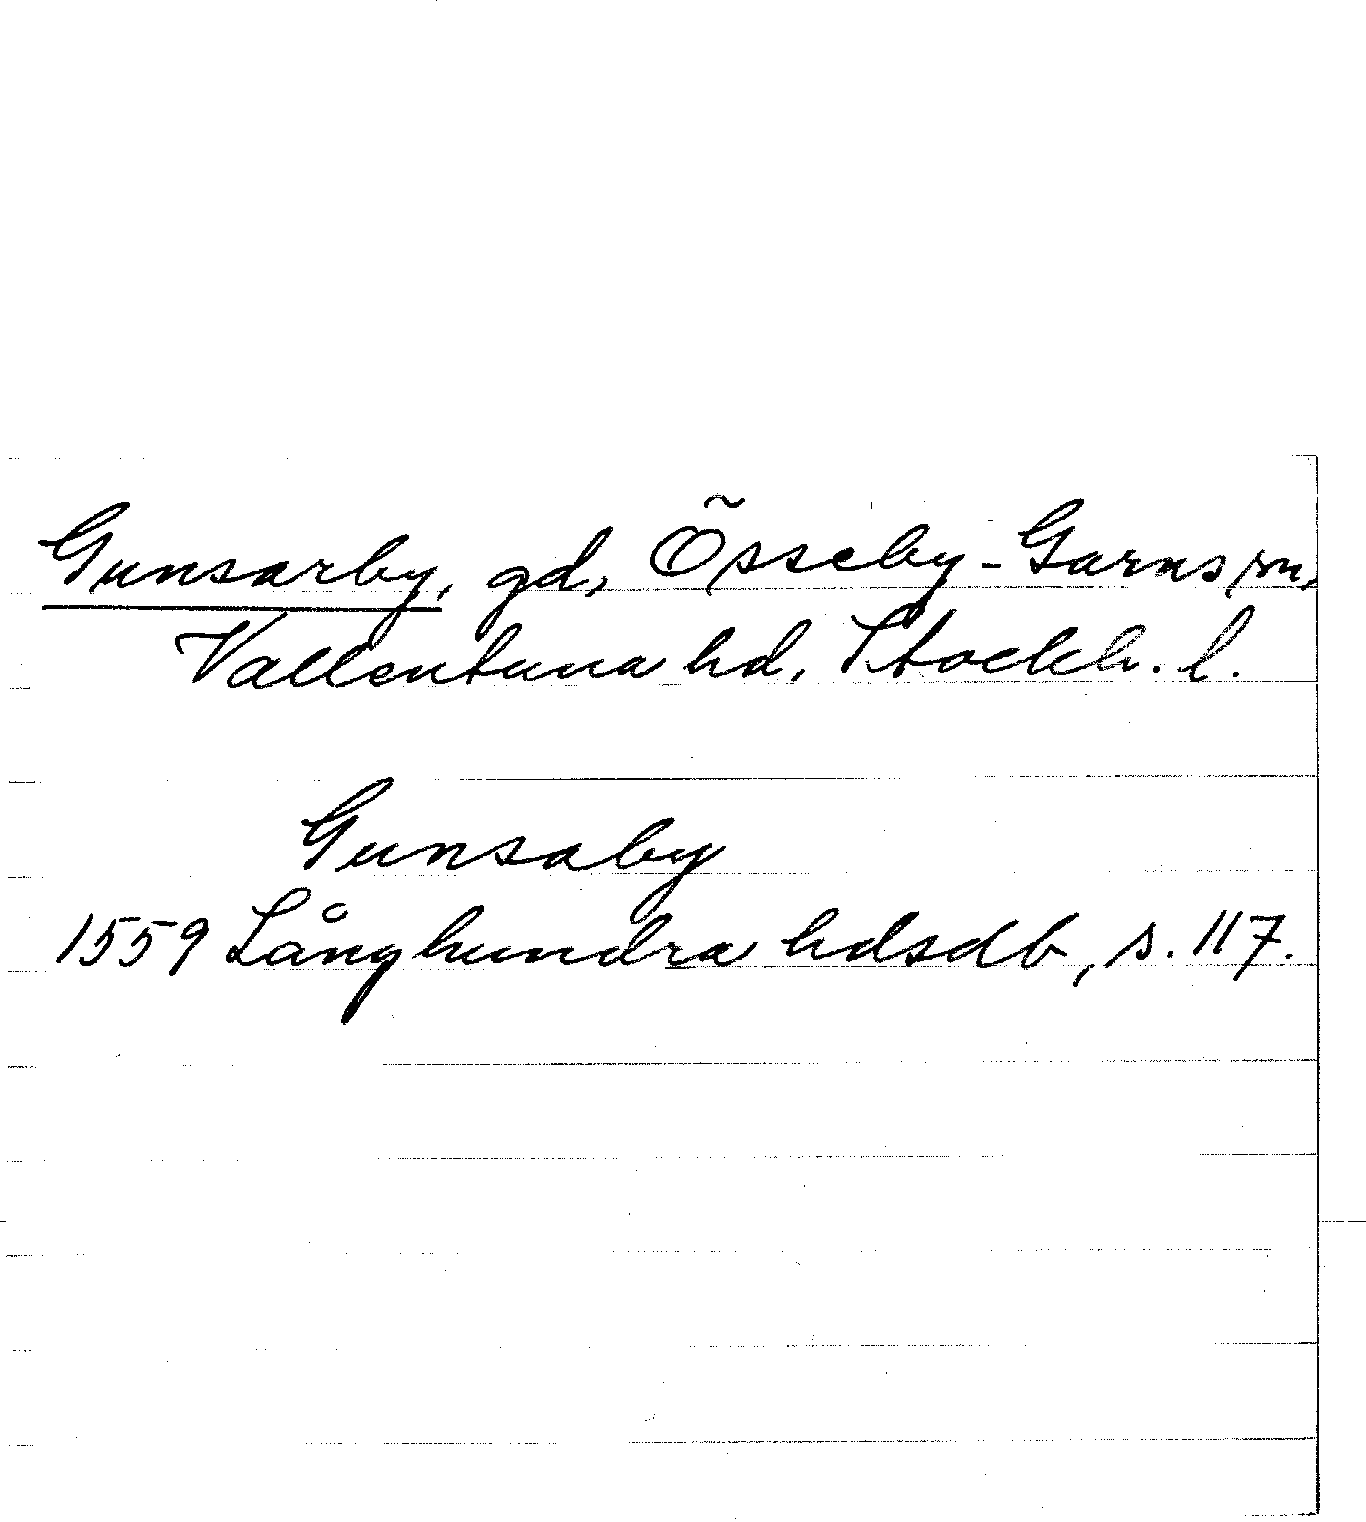 Gunsarby, gd, Össeby-Garns sn,
Vallentuna hd, Stockh. l.
Gunsaby
1559 Långhundra hdsdb, s. 117.